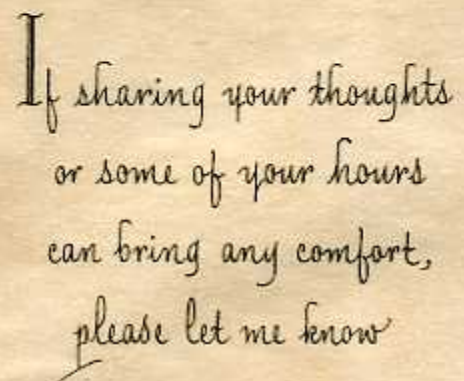 If sharing your thoughts
or some of your hours
can bring any comfort,
please let me know